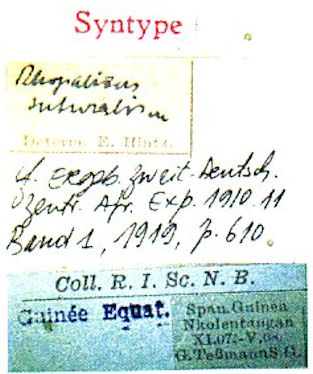 Syntype
Rhopalizus
suturalis m
Determ. E. Hintz.
cf. Ergeb. Zweit. Deutsch.
Zentr. Afr. Exp. 1910-11
Band 1, 1919, p. 610.
Coll. R. I. Sc. N. B.
Guinée Equat.
Span. Guinea
Nkolentangan
XI.07-V.08.
G. Teßmann S. G.